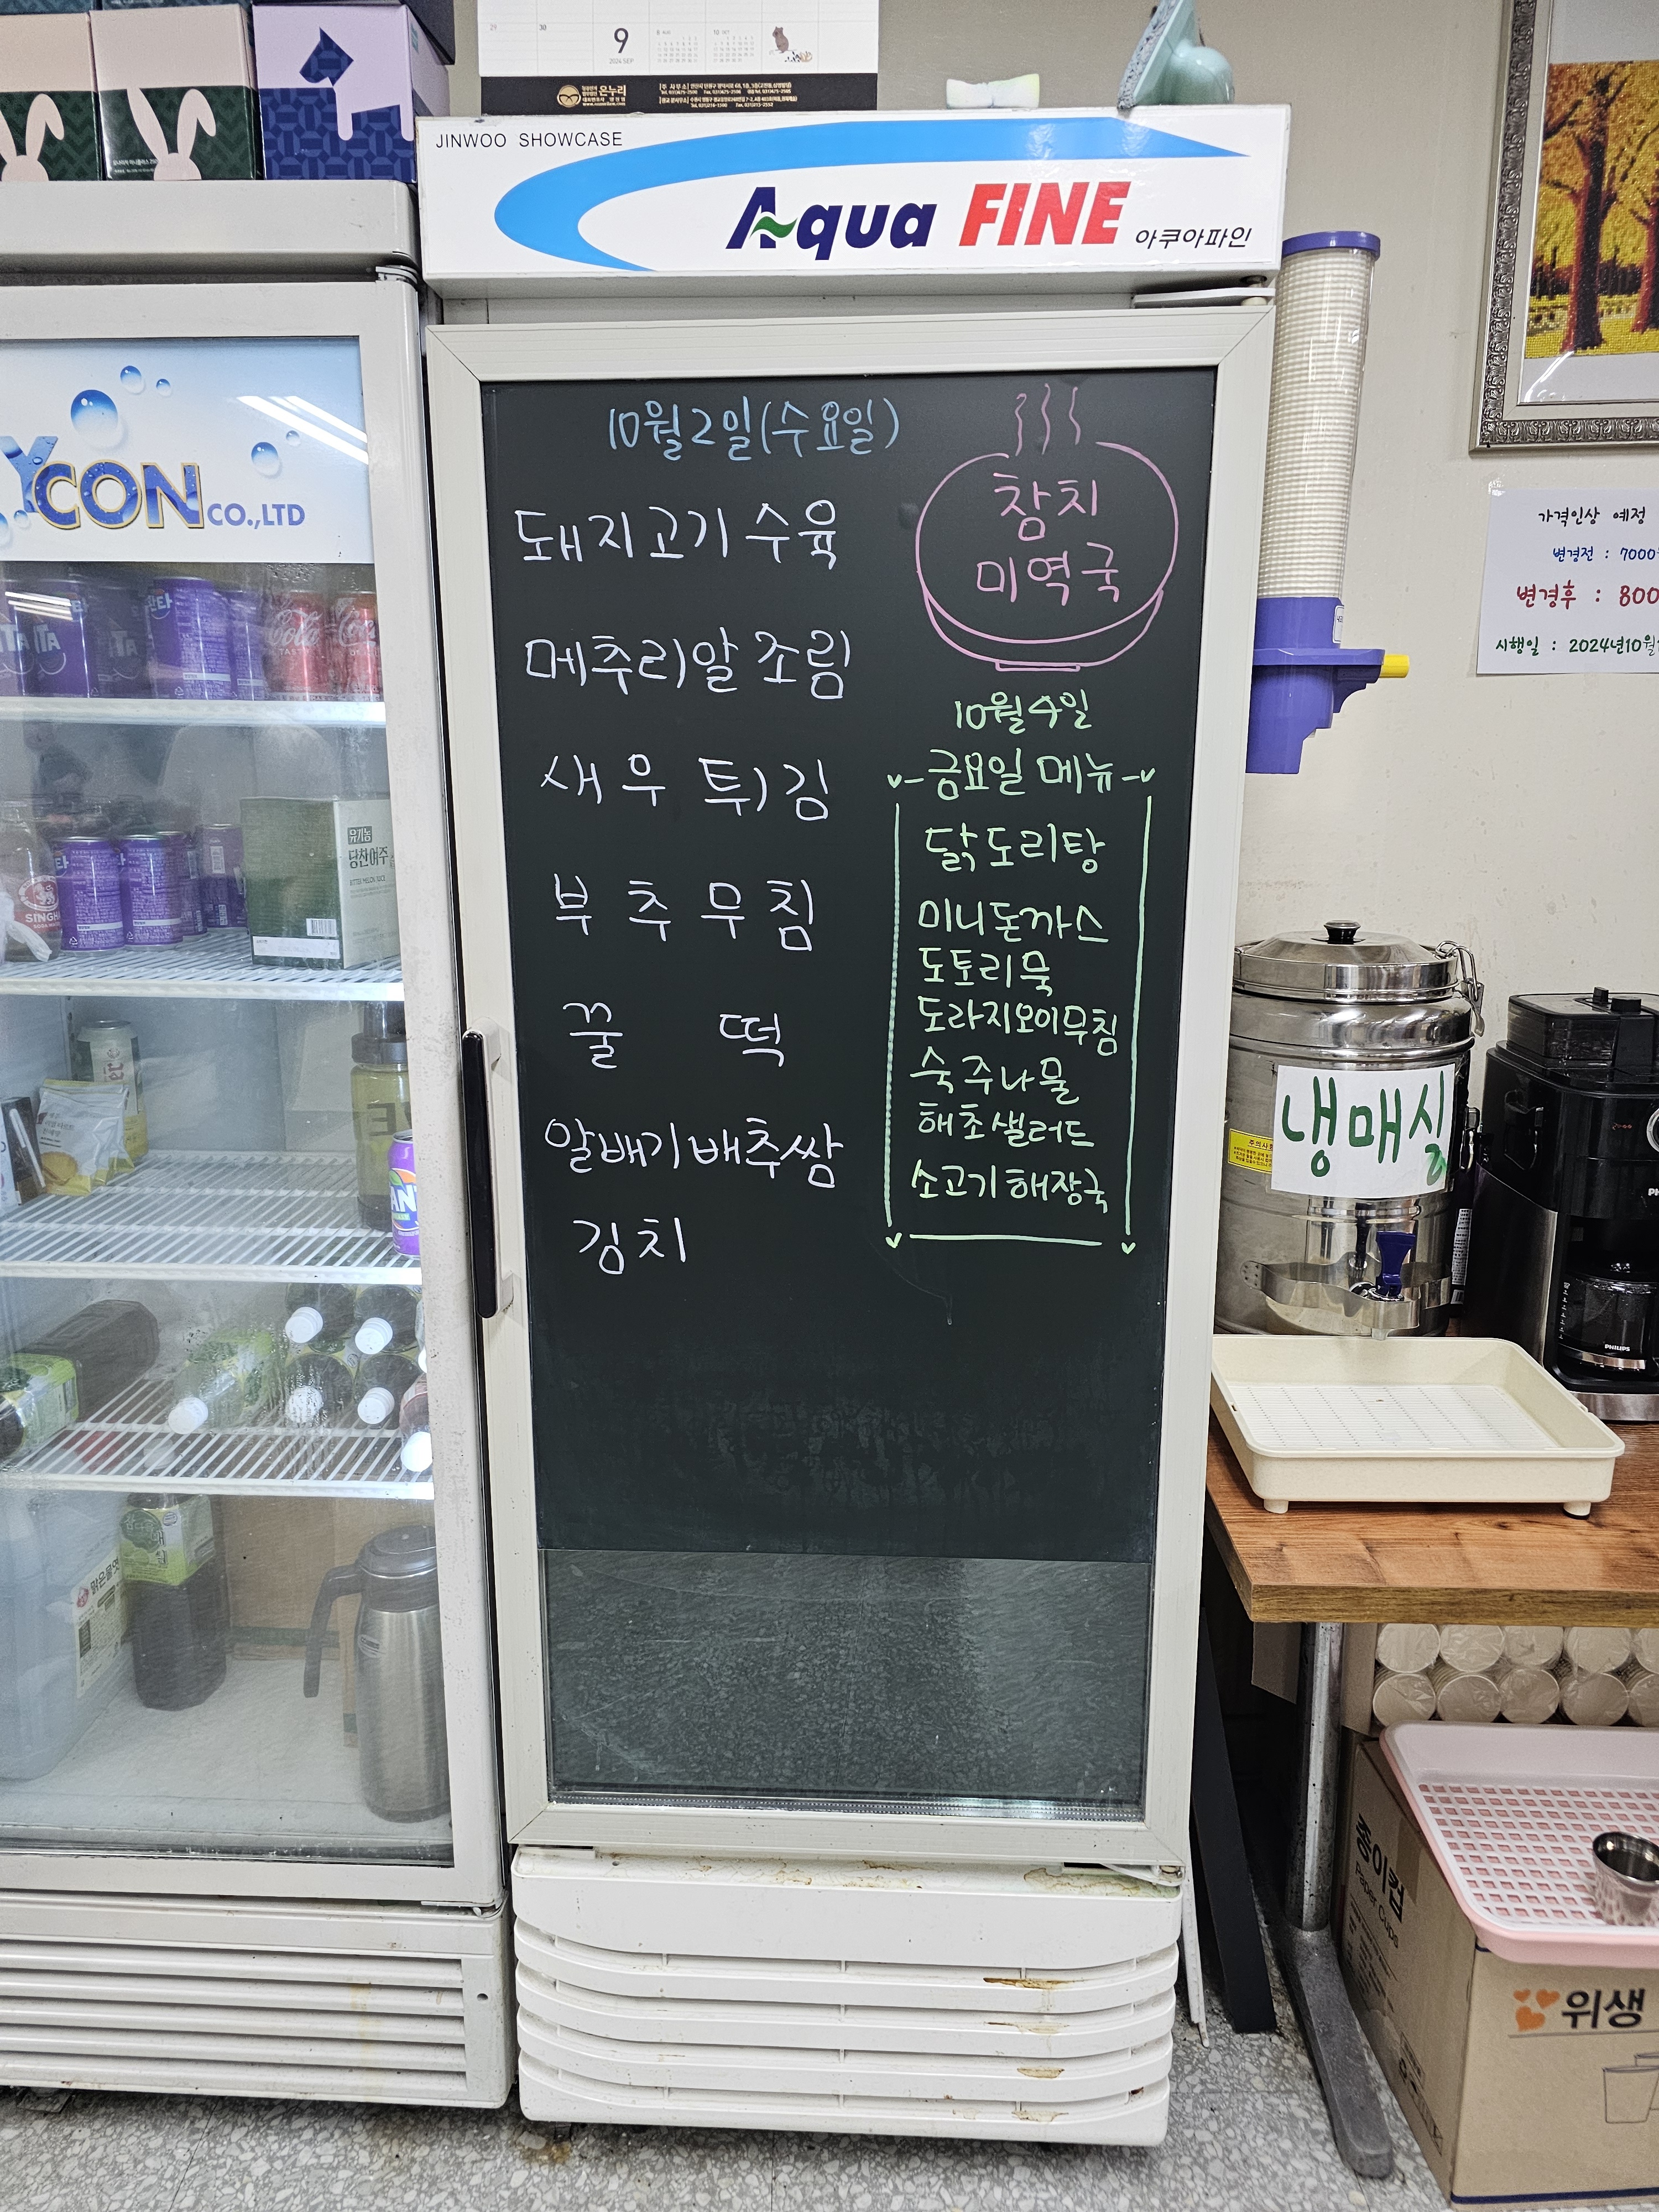 29 30
9
2024 SEP
8 AUG
10 OCT
온누리
JINWOO SHOWCASE
Aqua FINE 아쿠아파인
YCON CO.,LTD
10월2일(수요일)
돼지고기 수육
메추리알 조림
새우 튀김
부추무침
꿀 떡
알배기배추쌈
김치
참치
미역국
10월4일
금요일 메뉴
닭도리탕
미니돈까스
도토리묵
도라지오이무침
숙주나물
해초샐러드
소고기해장국
가격인상 예정
변경전 : 7000
변경후 : 800
시행일 : 2024년10월
냉매실
유기농
당찬여주
SINGHA
맑은물엿
PHILIPS
종이컵
Paper Cups
위생